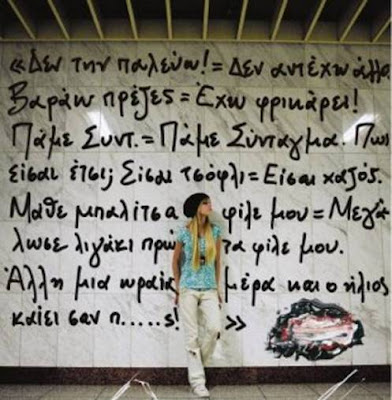 «Δεν την παλεύω! = Δεν αντέχω άλλο
Βαράω πρέζες = Έχω φρικάρει!
Πάμε Συντ. = Πάμε Σύνταγμα. Πως
είσαι έτσι; Είσαι τσόφλι = Είσαι χαζός.
Μάθε μπαλίτσα φίλε μου = Μεγά
λωσε λιγάκι πρώτα φίλε μου.
Άλλη μια ωραία μέρα και ο ήλιος
καίει σαν π.....ς! »